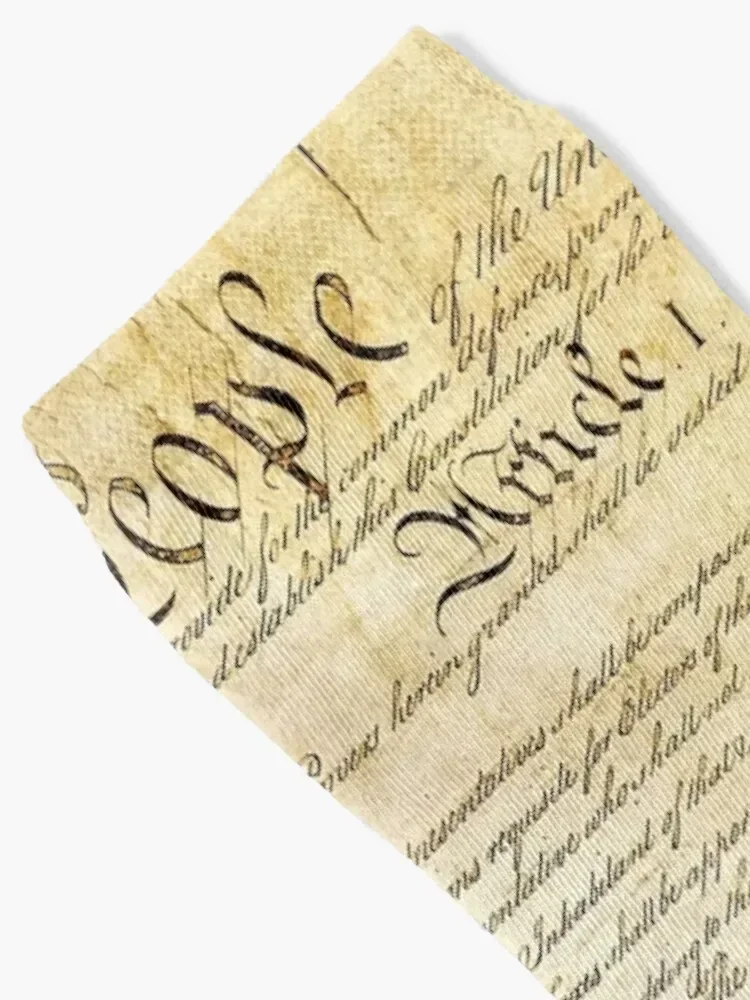 eople of the Un
rovide for the common defence, prom
d establish this Constitution for the
Article. I.
owers herein granted shall be vested
presentatives shall be compose
ons requisite for Electors of the
entative who shall not
Inhabitant of that
axes shall be appor
dding to the
The